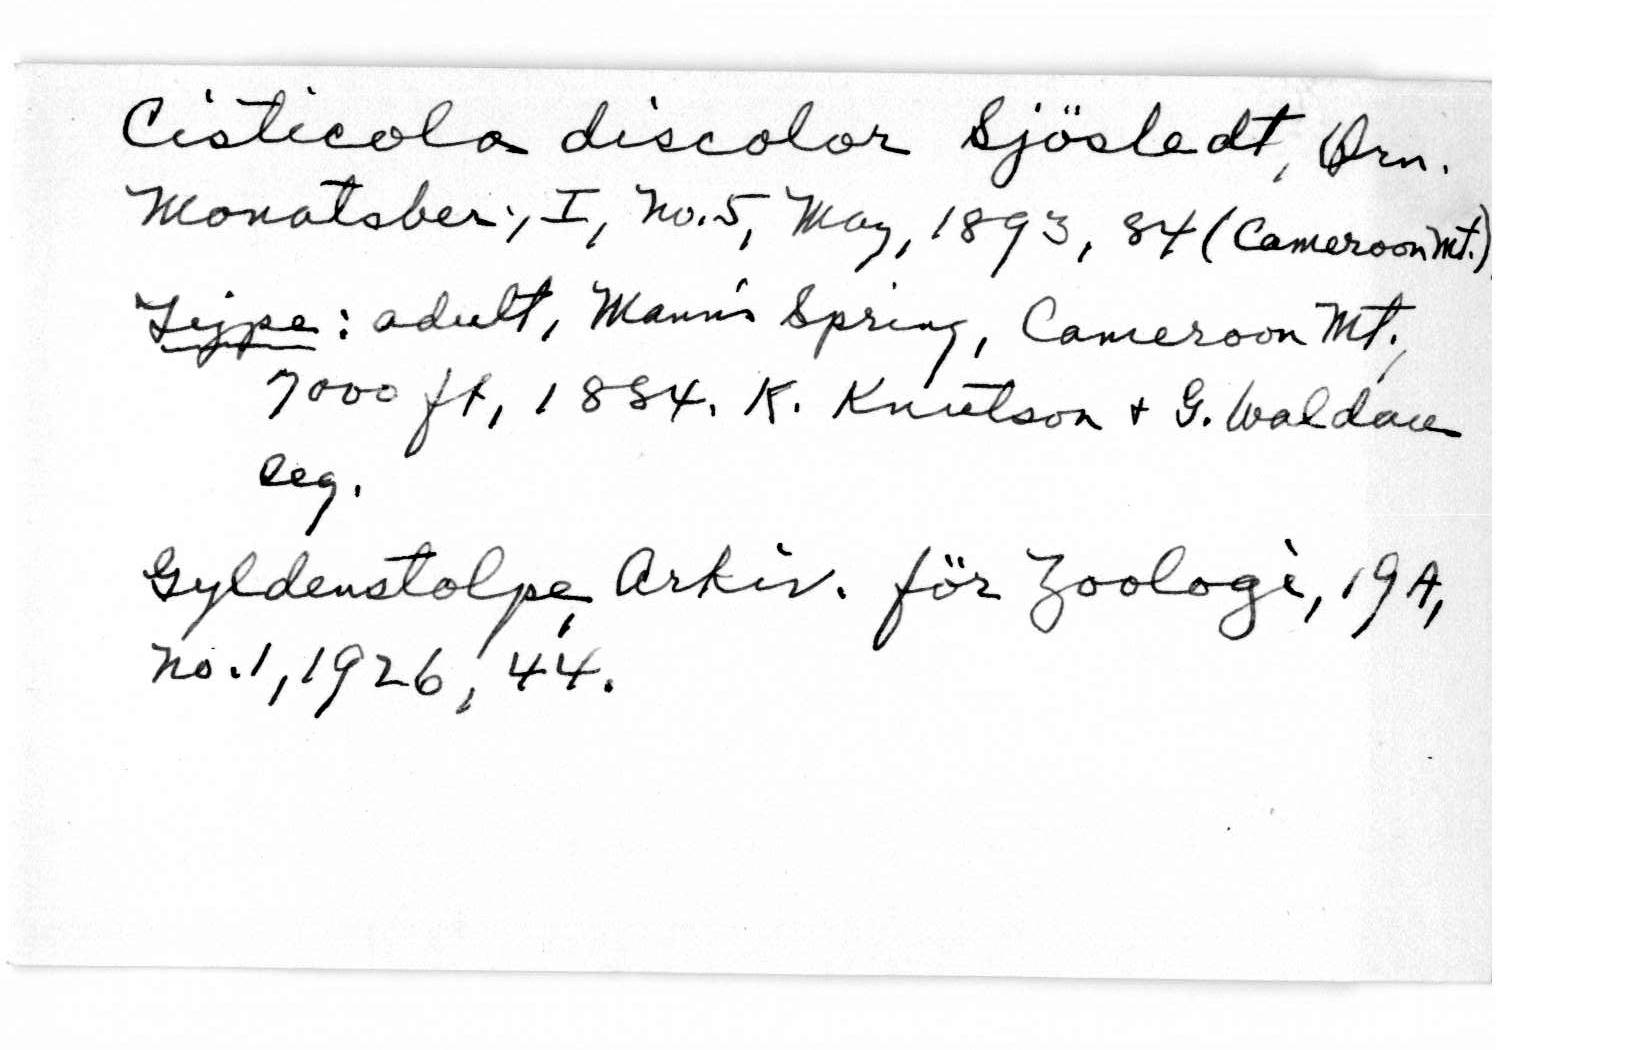 Cisticola discolor Sjösledt, Orn.
Monatsber., I, no. 5, May, 1893, 84 (Cameroon Mt.)
Type: adult, Mann's Spring, Cameroon Mt.,
7000 ft, 1884. K. Knutson + G. Waldau
leg.
Gyldenstolpe, Arkiv. för Zoologi, 19A,
no. 1, 1926, 44.